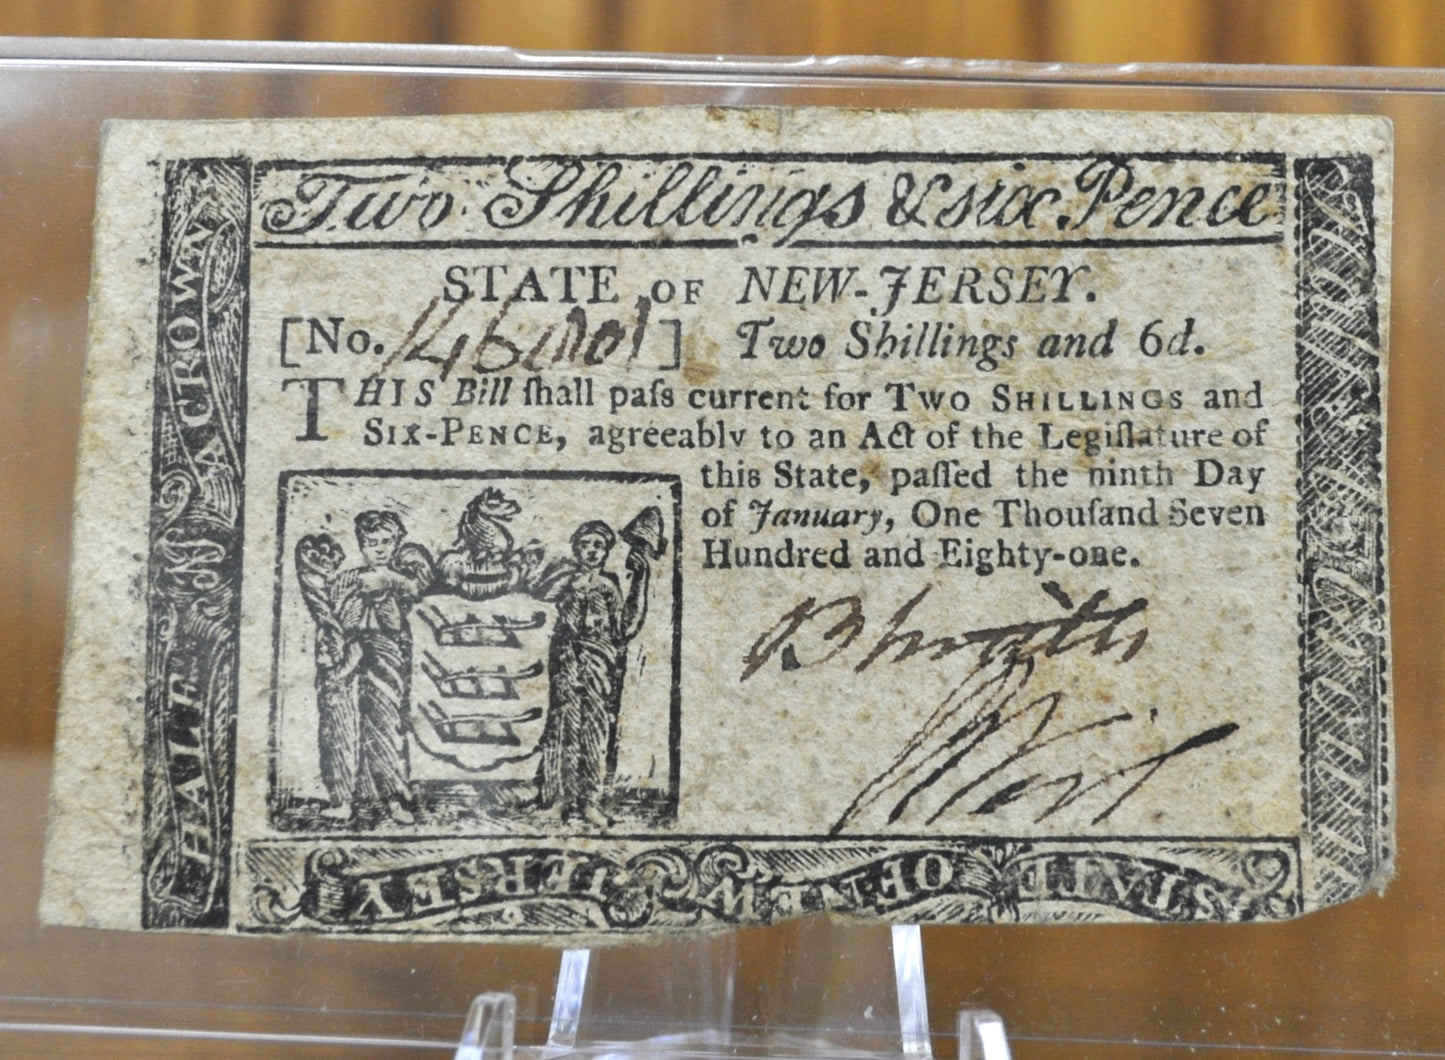 Two Shillings & six Pence
STATE OF NEW-JERSEY.
[No. ] Two Shillings and 6d.
THIS Bill ſhall paſs current for TWO SHILLINGS and
SIX-PENCE, agreeably to an Act of the Legiſlature of
this State, paſſed the ninth Day
of January, One Thouſand Seven
Hundred and Eighty-one.
HALF A CROWN
STATE OF NEW JERSEY